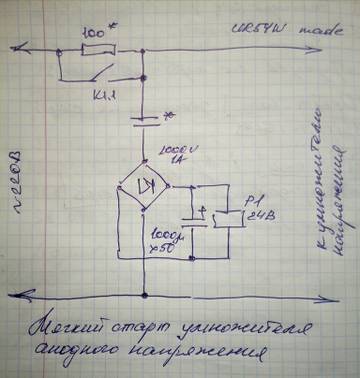 100*
UR5YW made
K1.1
*
1000V
1A
~220В
P1
24В
+
1000µ
x50
к умножителю
напряжения
Мягкий старт умножителя
анодного напряжения